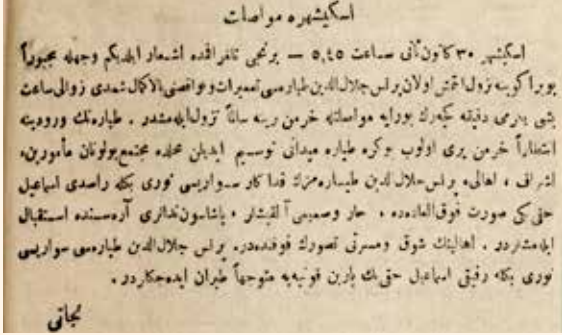 اسکیشهره مواصلت
اسکیشهر ٣٠ کانون ثانی ساعت ٥,٤٥ — برنجی تلغرافمده اشعار ایلدیکم وجهله مجبوراً
بوبرا کوینه نزول ایتمش اولان پرنس جلال الدین طیاره‌سی تعمیرات و نواقصنی بالاکمال شمدی زوالی ساعت
بشی یکرمی دقیقه کچه‌رك بورایه مواصلتله خرمن یرینه سالماً نزول ایله‌مشدر . طیاره‌نك ورودینه
انتظاراً خرمن یری اولوب بوکره طیاره میدانی توسیم ایدیلن محلده مجتمع بولونان مأمورین،
اشراف ، اهالی، پرنس جلال الدین طیاره‌مزك فداکار سواریسی نوری بکله راصدی اسماعیل
حقی بکی صورت فوق العاده‌ده ، حار و صمیمی آلقیشلر ، یاشاسون ندالری آره‌سنده استقبال
ایله‌مشلردر . اهالینك شوق و مسرتی تصورك فوقنده‌در. پرنس جلال الدین طیاره‌سی سواریسی
نوری بکله رفیقی اسماعیل حقی بك یارین قونیه‌یه متوجهاً طیران ایده‌جکلردر .
نجاتی